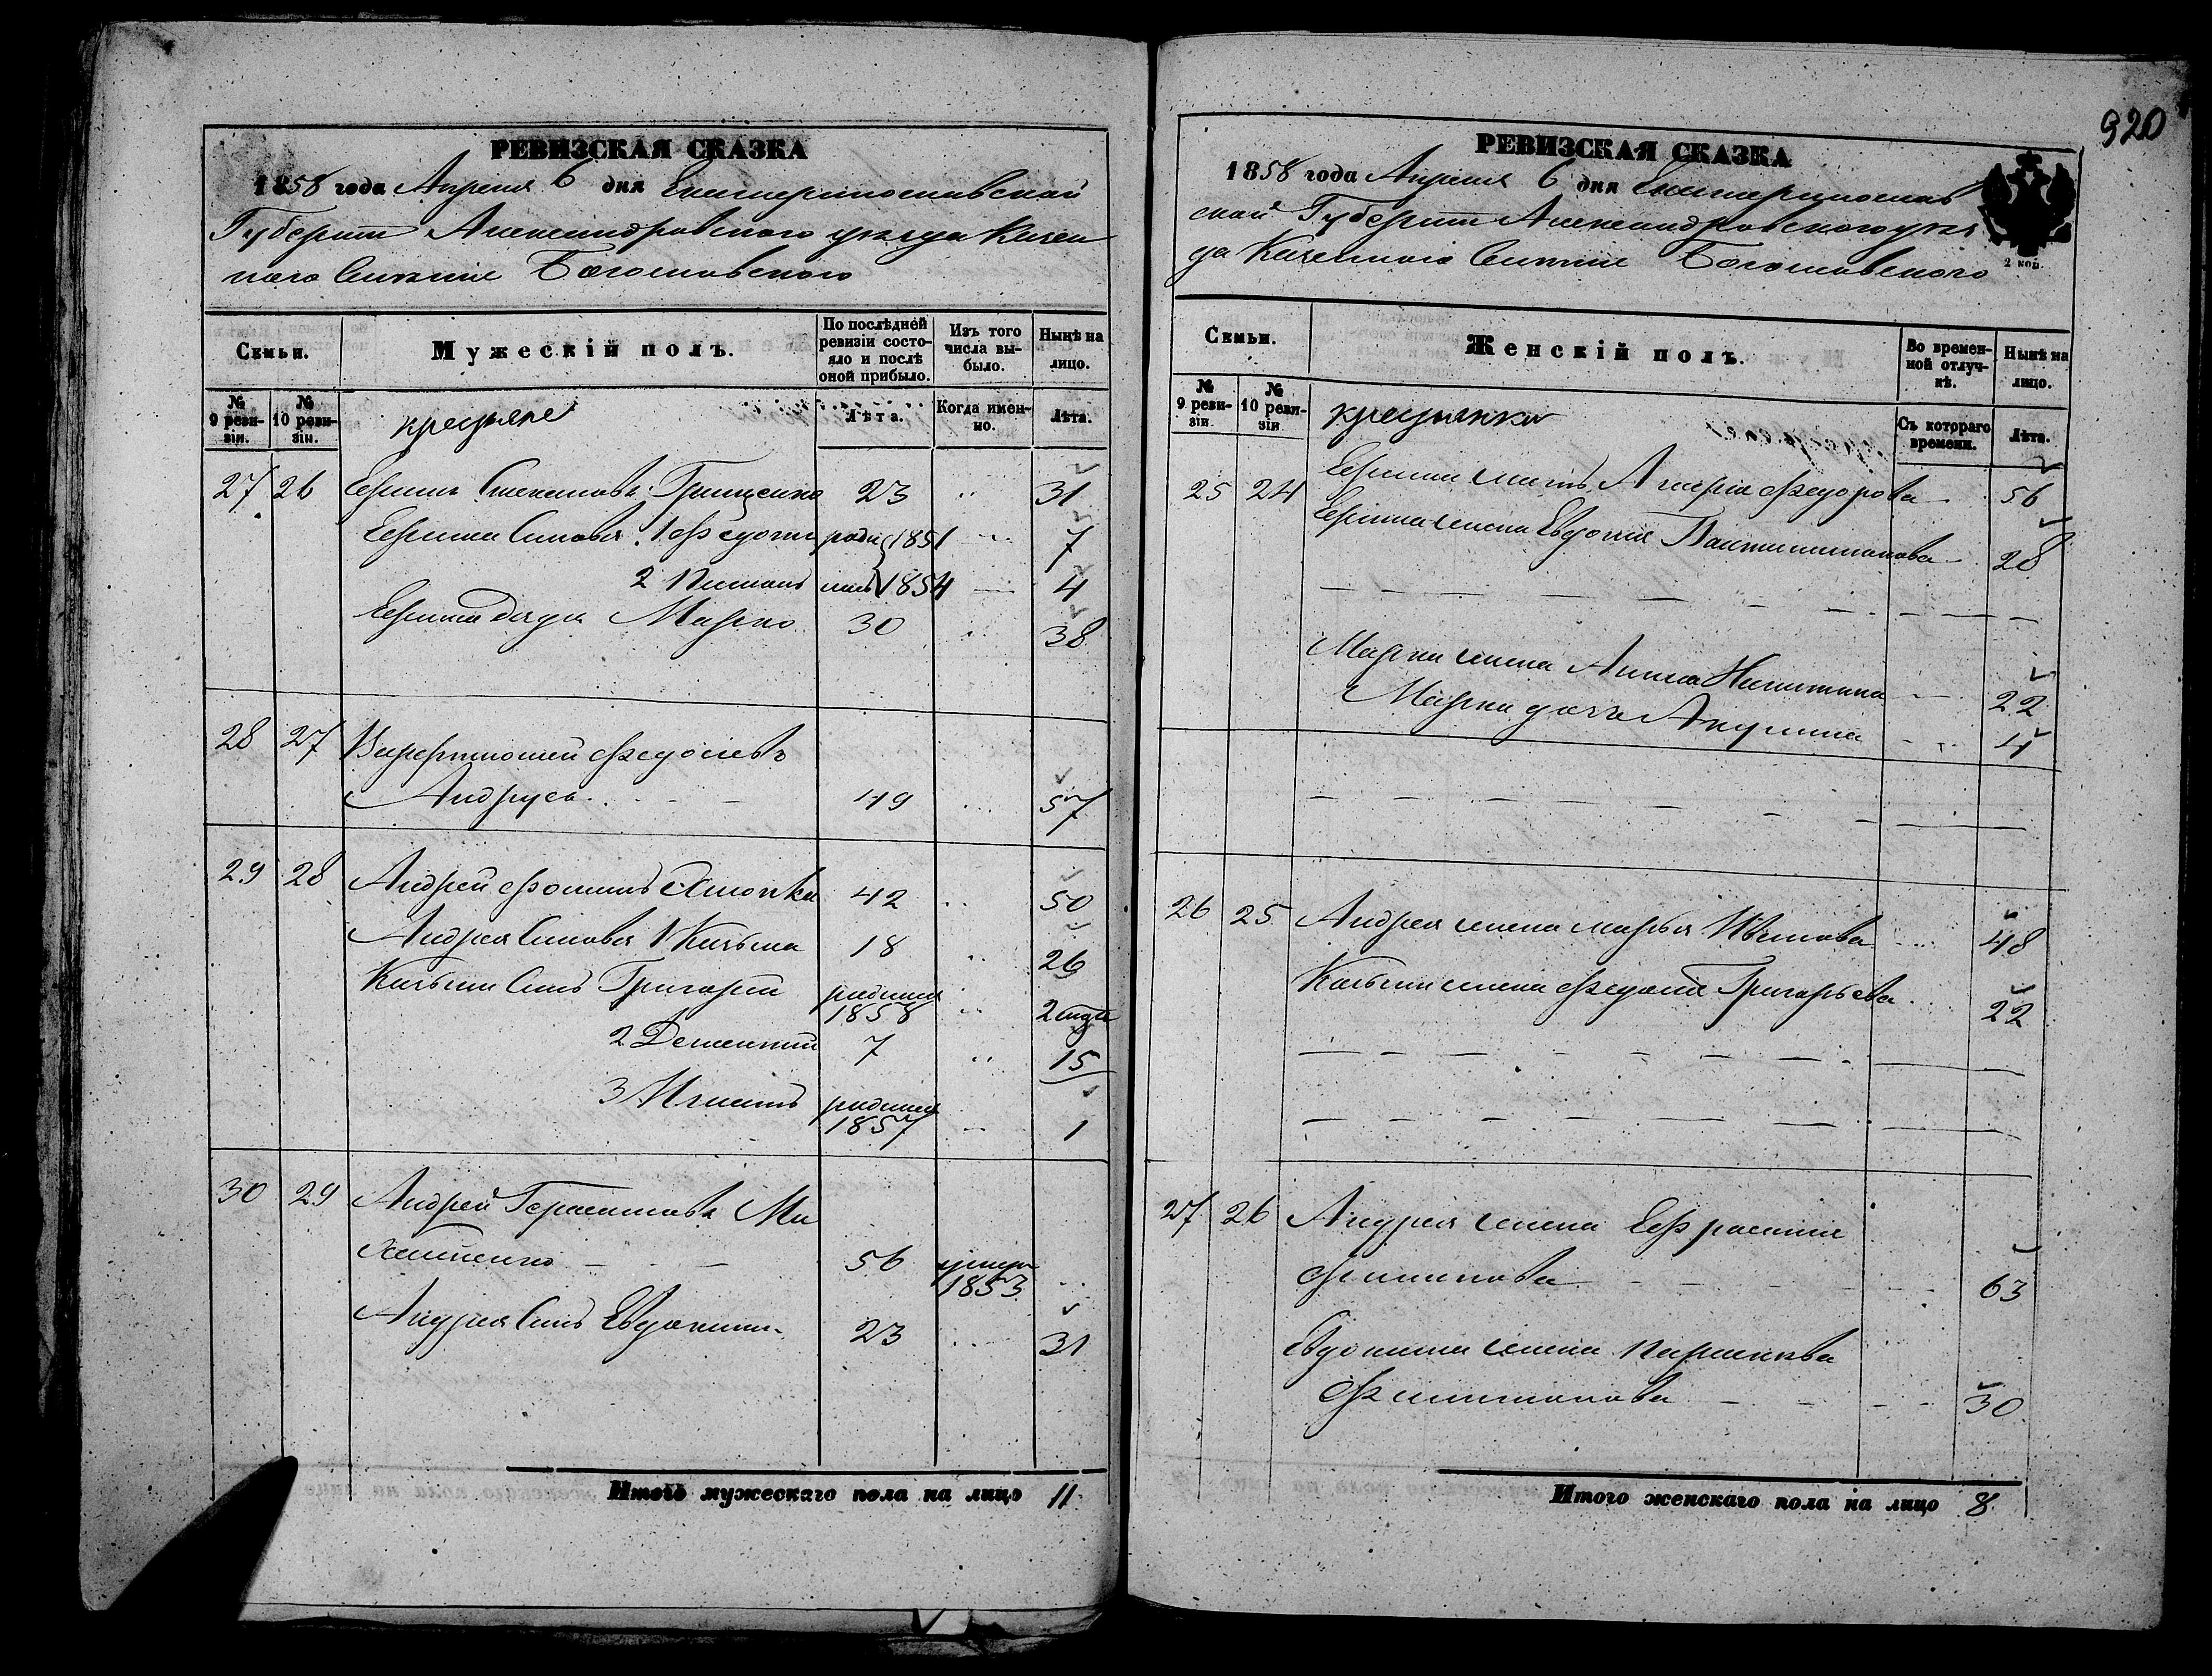 920
РЕВИЗСКАЯ СКАЗКА
1858 года Апреля 6 дня Екатеринославской
Губернии Александровского уезда Казен
ного Селения Богословского
Семьи.
Мужескій полъ.
По послѣдней ревизіи состояло и послѣ оной прибыло.
Изъ того числа выбыло.
Нынѣ на лицо.
№ 9 ревизіи.
№ 10 ревизіи.
крестьяне
Лѣта.
Когда именно.
Лѣта.
27 26 Ефимъ Степановъ Грищенко 23 31
Ефима Сыновья 1 Федотъ роди 1851 7
2 лись 1854 4
Ефима дядя Марко 30 38
28 27 Варфоломей Федосеевъ
Андрусь 49 57
29 28 Андрей Фоминъ 42 50
Андрея Сыновья 1 Козьма 18 26
Козьмы Сынъ Григорий родился 1858 2
2 Дементий 7 15
3 Игнатъ родился 1857 1
30 29 Андрей Герасимовъ Ми
хайленко 56 умеръ 1853
Андрея Сынъ Евдокимъ 23 31
Итого мужескаго пола на лицо 11
РЕВИЗСКАЯ СКАЗКА
1858 года Апреля 6 дня Екатеринослав
ской Губернии Александровского уез
да Казенного Селения Богословского
2 коп.
Семьи.
Женскій полъ.
Во временной отлучкѣ.
Нынѣ на лицо.
№ 9 ревизіи.
№ 10 ревизіи.
крестьянки
Съ котораго времени.
Лѣта.
25 24 Ефима мать Федорова 56
Ефима жена Евдокия 28
Марка жена Анна Никитина 22
Марка дочь Акулина 4
26 25 Андрея жена Марья Иванова 48
Козьмы жена Григорьева 22
27 26 Андрея жена Ефросиния
Филипова 63
Евдокима жена
30
Итого женскаго пола на лицо 8